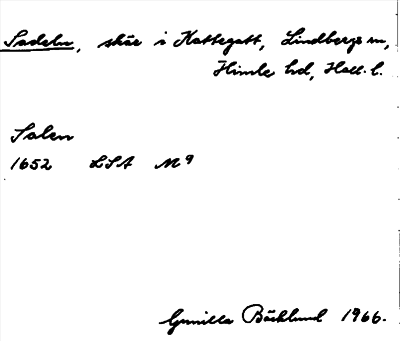 Sadeln, skär i Kattegatt, Lindbergs sn,
Himle hd, Hall. l.
Salen
1652 LSA M 9
Gunilla Bäcklund 1966.